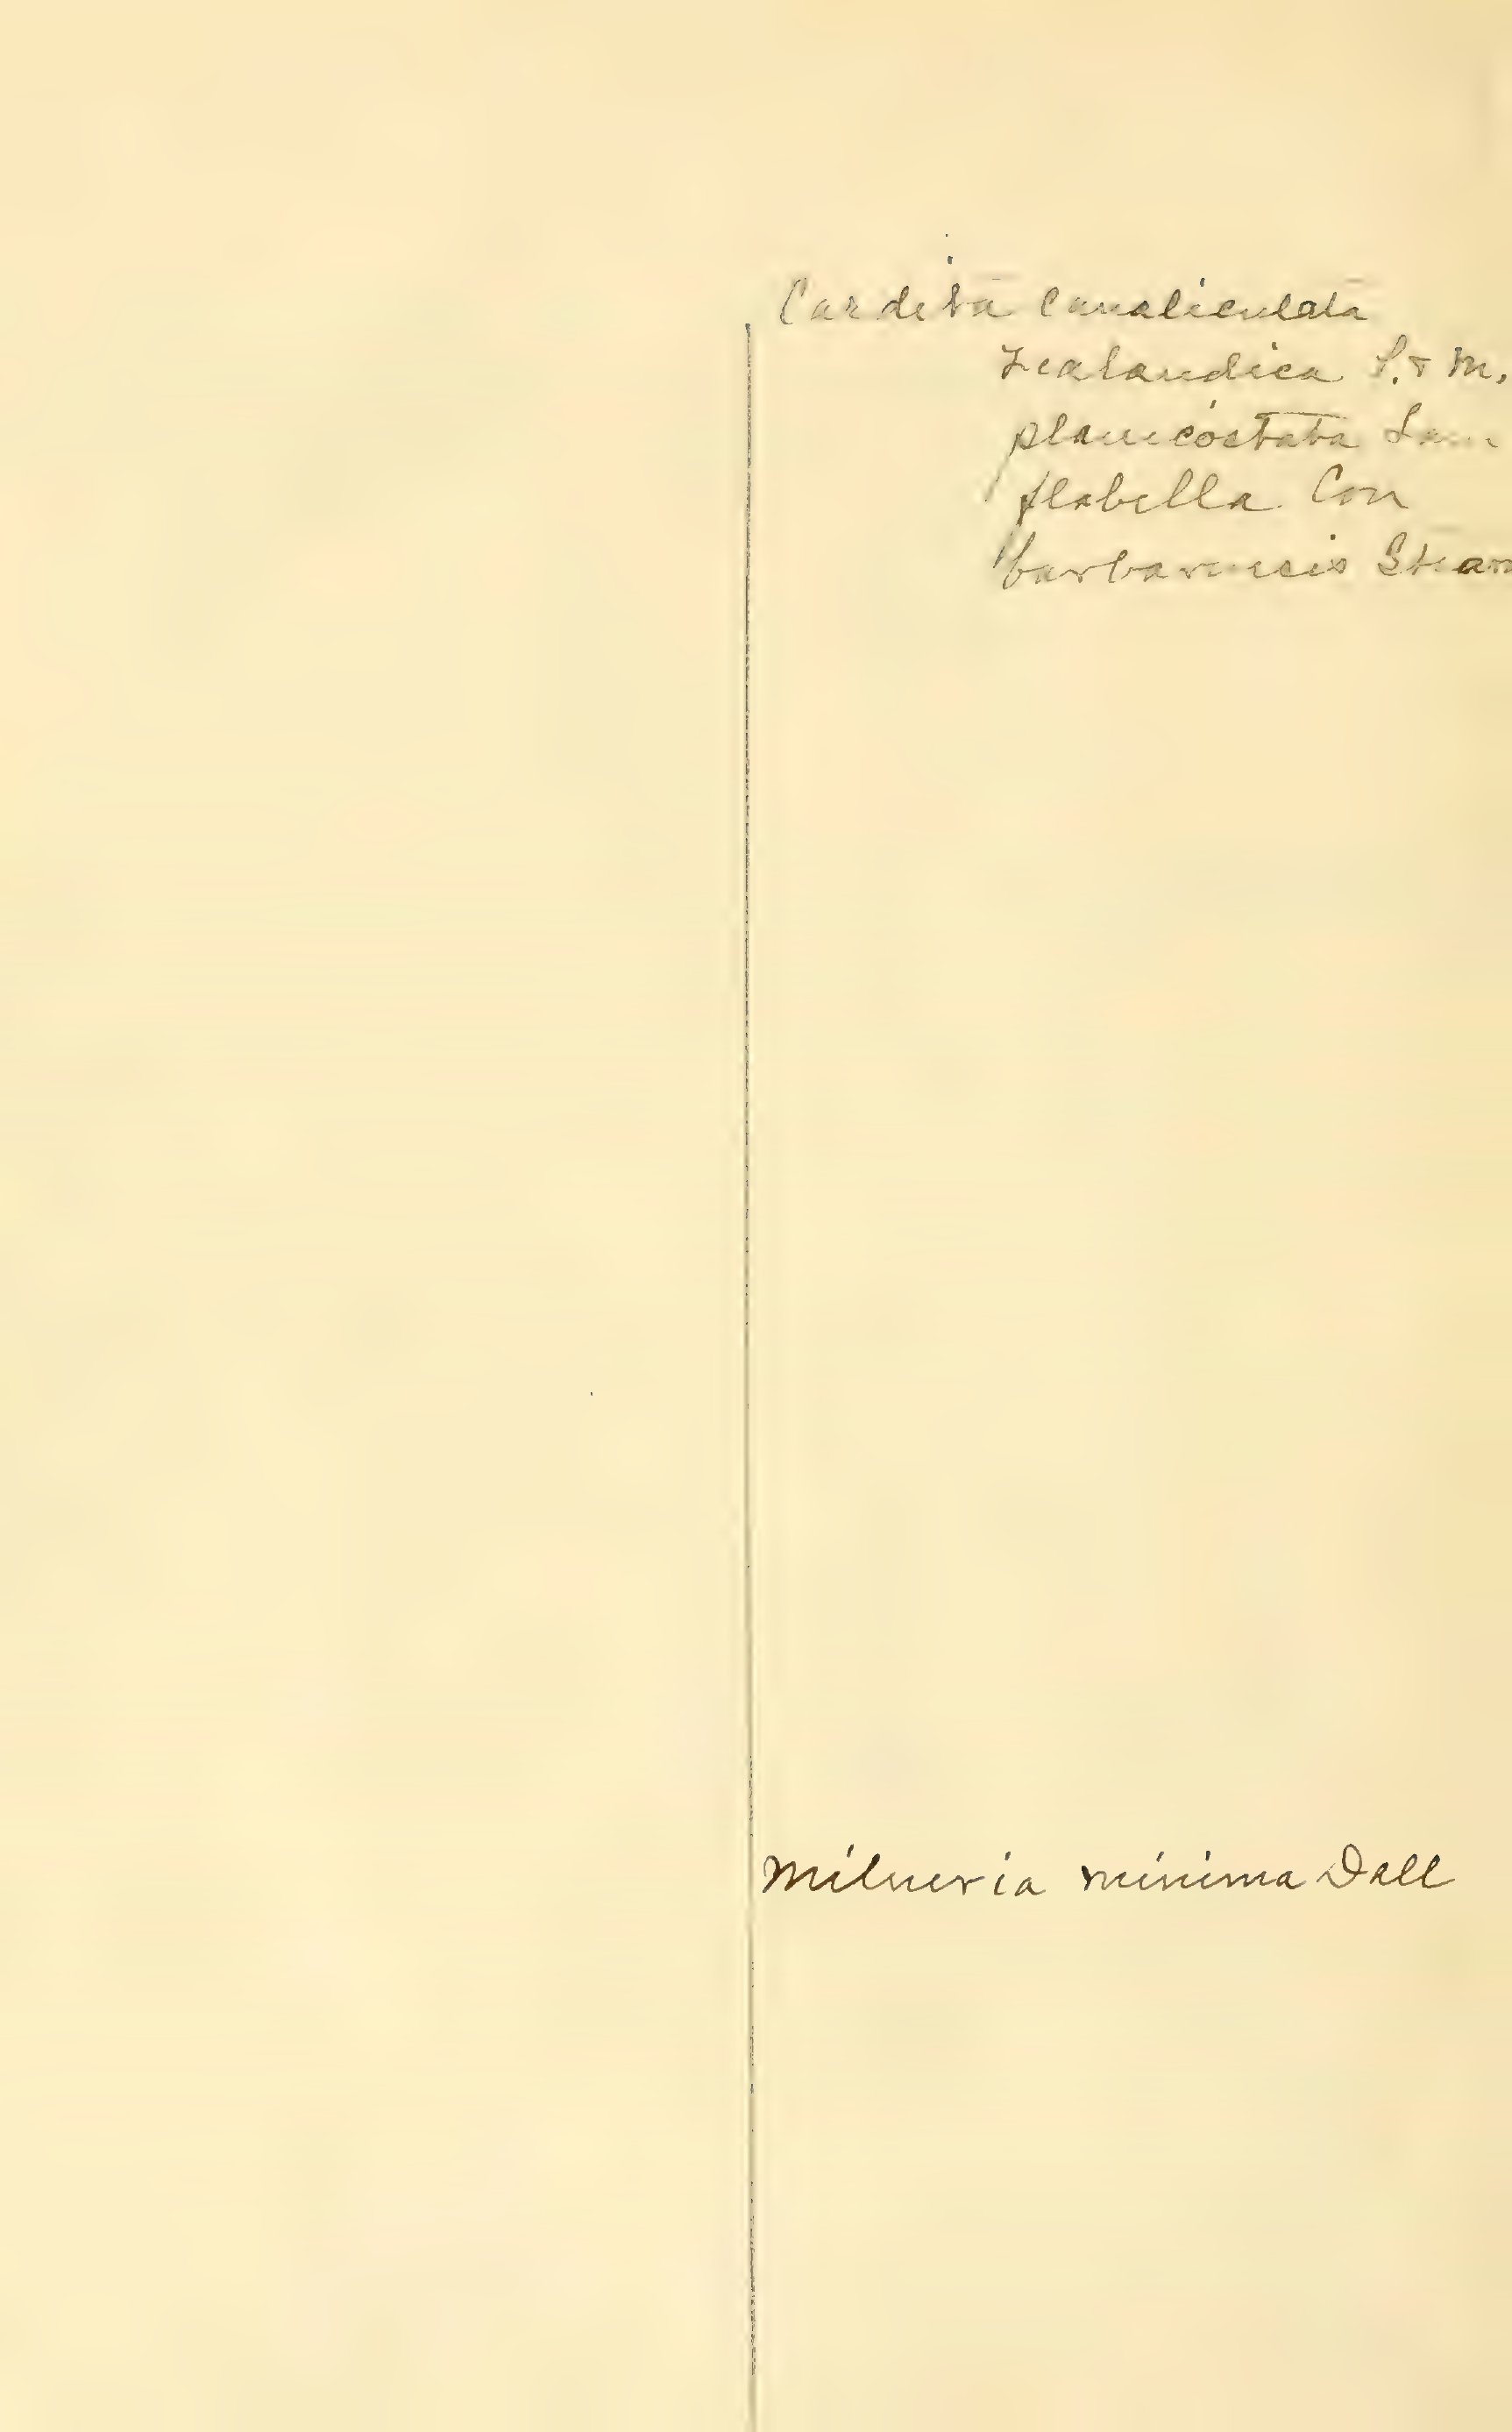 Cardita canaliculata
zealandica P. & M.
planicostata Lam
flabella Con
barbarensis Stear
Milneria minima Dall